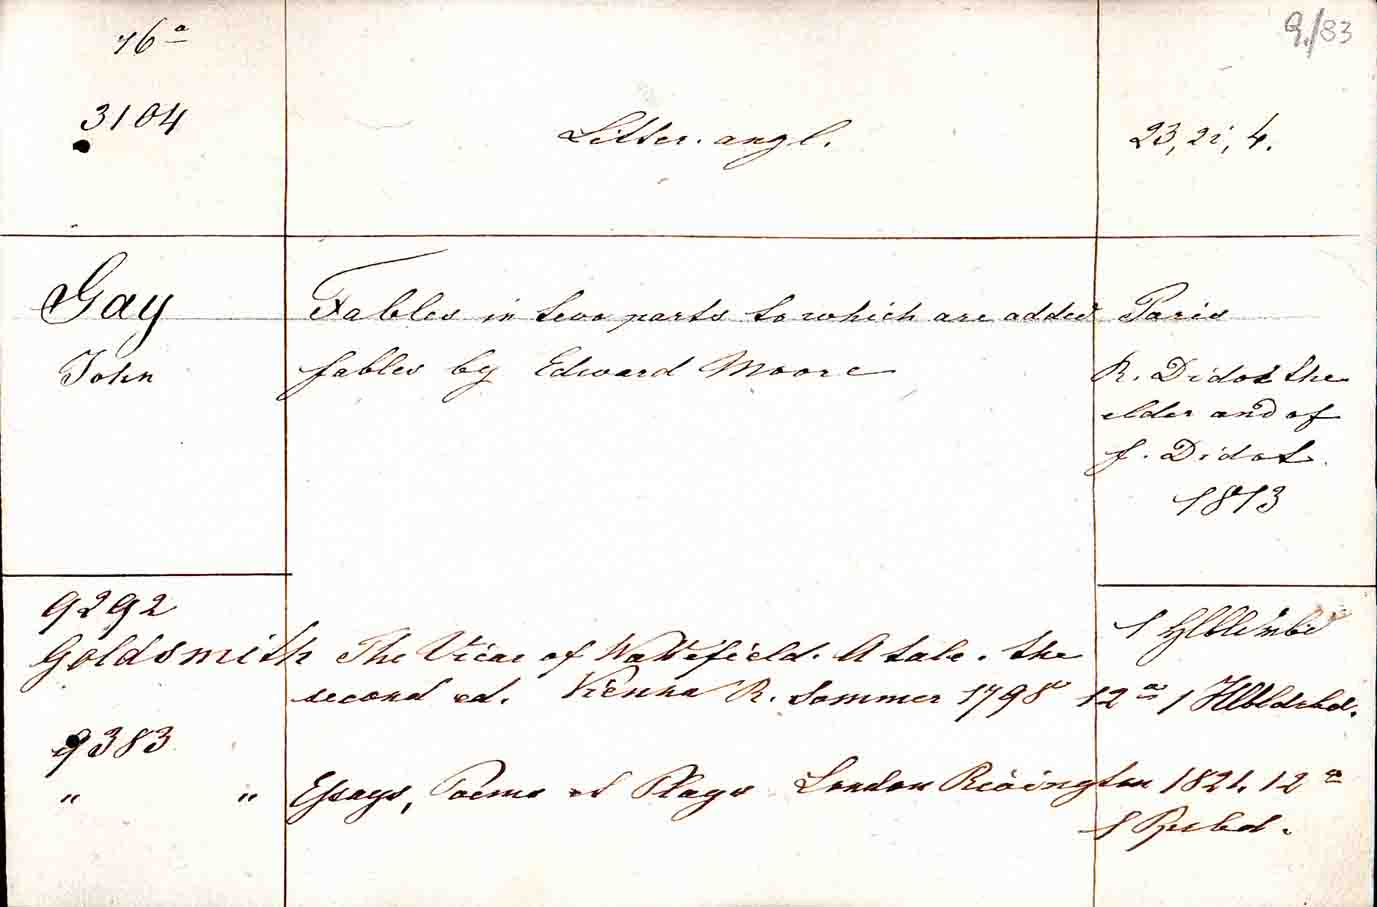 16a
9./83
3104
Litter. angl.
23, 2i, 4.
Gay
Fables in two parts to which are added
Paris
John
fables by Edward Moore
R. Didot the
elder and of
f. Didot.
1813
9292
1 Hlbldrbd
Goldsmith The Vicar of Wakefield. A tale. the
second ed. Vienna R. Sammer 1798 12° 1 Hlbldrbd.
9383
" " Essays, Poems et Plays London Rivington 1821. 12°